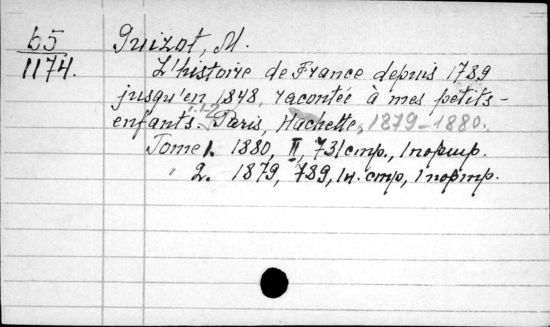 65
1174.
Guizot, M.
L'histoire de France depuis 1789
jusqu'en 1848, racontée à mes petits-
enfants. Paris, Hachette, 1879-1880.
Tome 1. 1880, II, 731 стр., 1 портр.
" 2. 1879, 789, 1 н. стр., 1 портр.